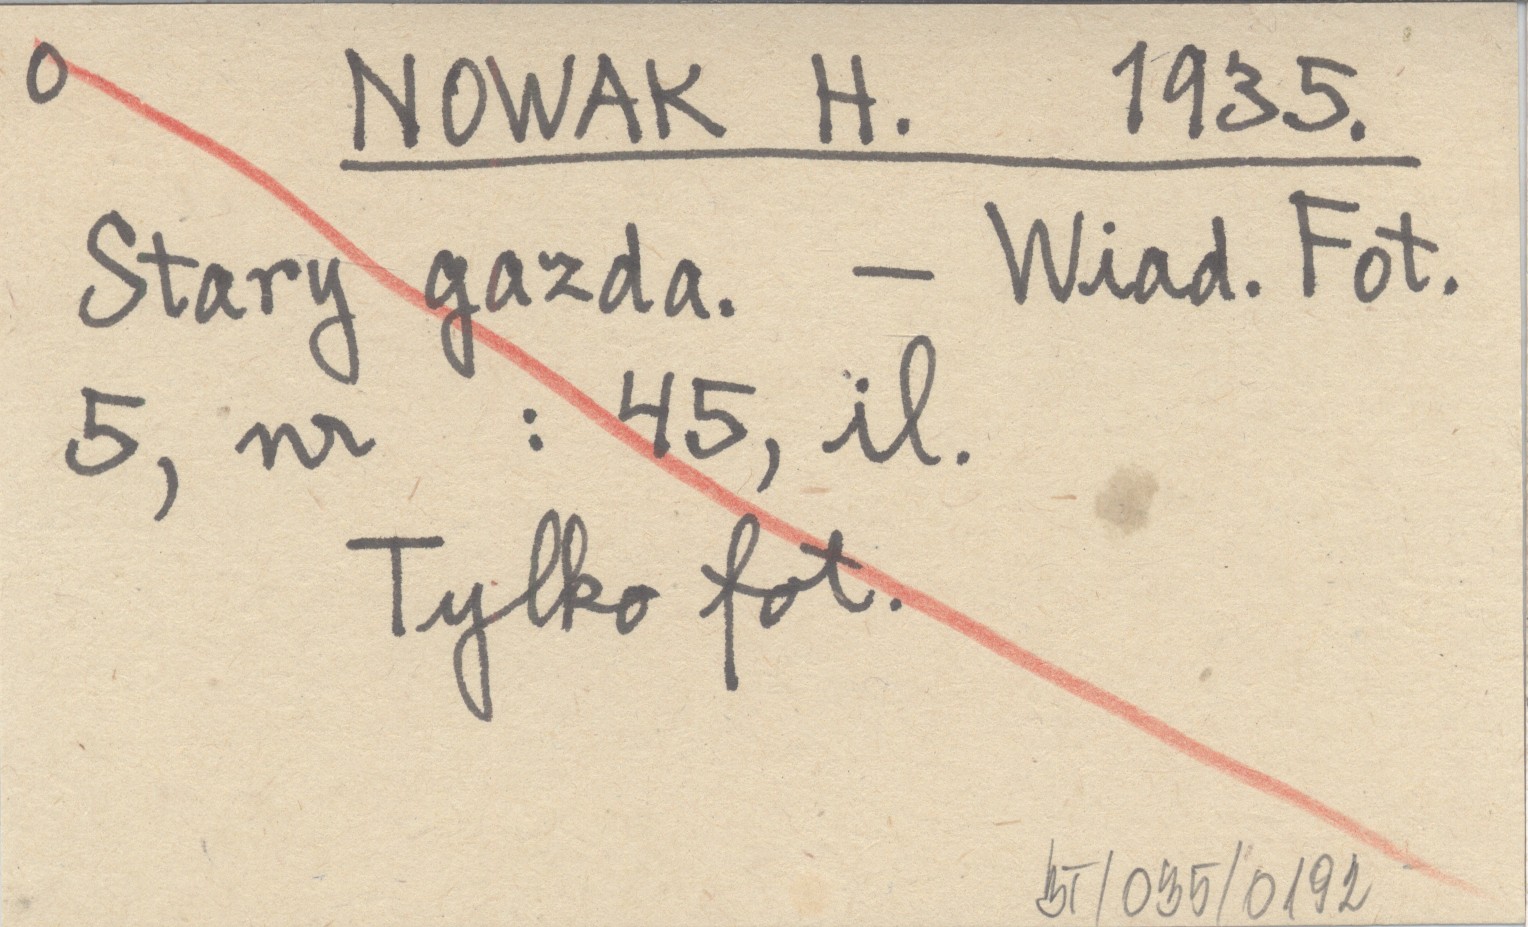 O NOWAK H. 1935.
Stary gazda. — Wiad. Fot.
5, nr : 45, il.
Tylko fot.
BT/035/0192